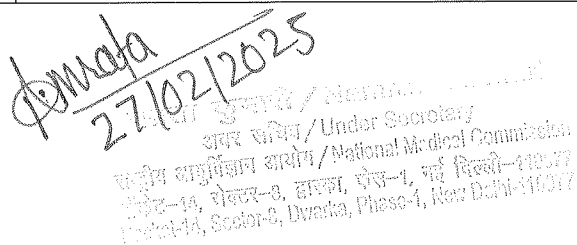 27/02/2025
अवर सचिव / Under Secretary
आयुर्विज्ञान आयोग / National Medical Commission
सेक्टर-8, द्वारका, फेस-1, नई दिल्ली-110077
14, Sector-8, Dwarka, Phase-1, New Delhi-110077